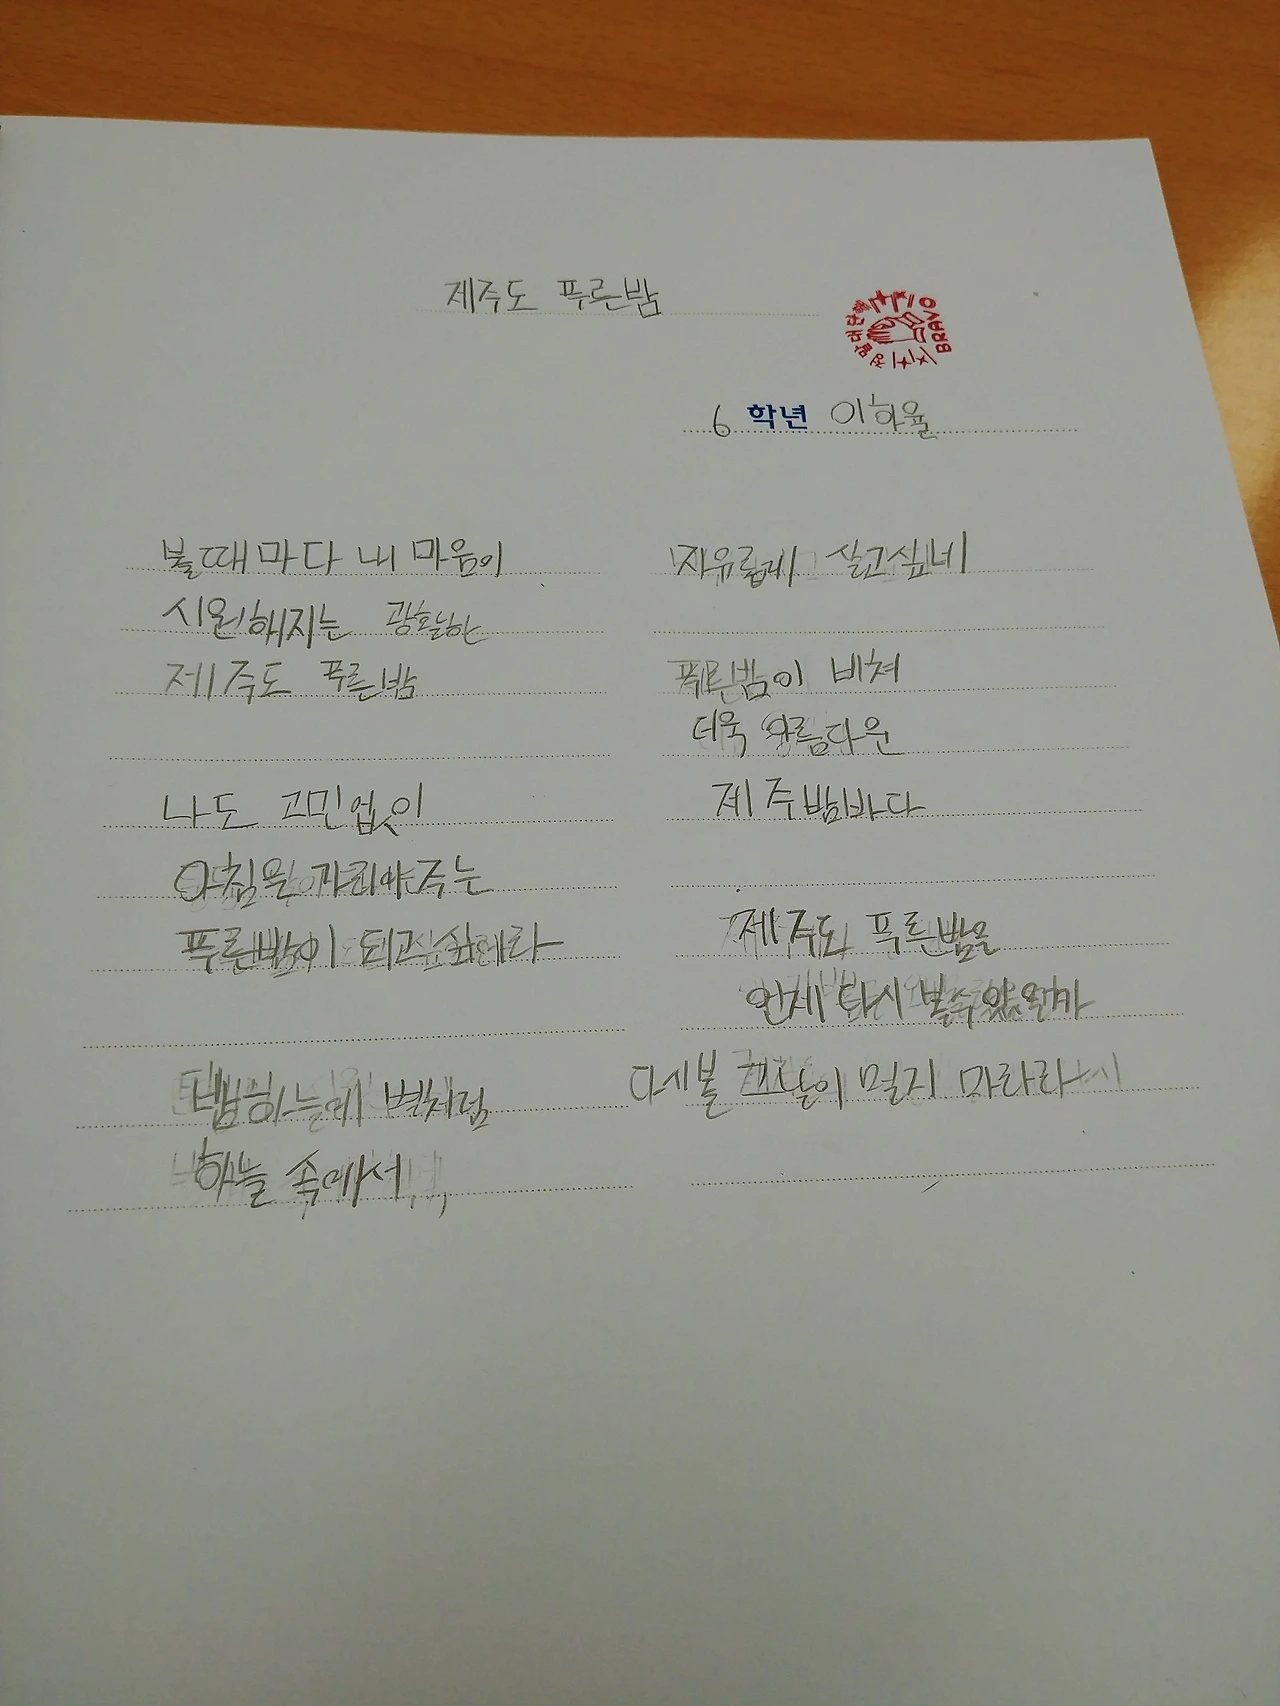 제주도 푸른밤
참 대단해 BRAVO
6 학년 이하율
볼때마다 내 마음이
시원해지는 광활한
제주도 푸른밤
나도 고민없이
아침을 가리아주는
푸른밤이 되고싶어라
밤하늘에 별처럼
하늘 속에서
자유롭게 살고싶네
푸른밤이 비쳐
더욱 아름다운
제주밤바다
제주도 푸른밤을
언제 다시 볼수있을까
다시볼 그날이 멀지 마라라